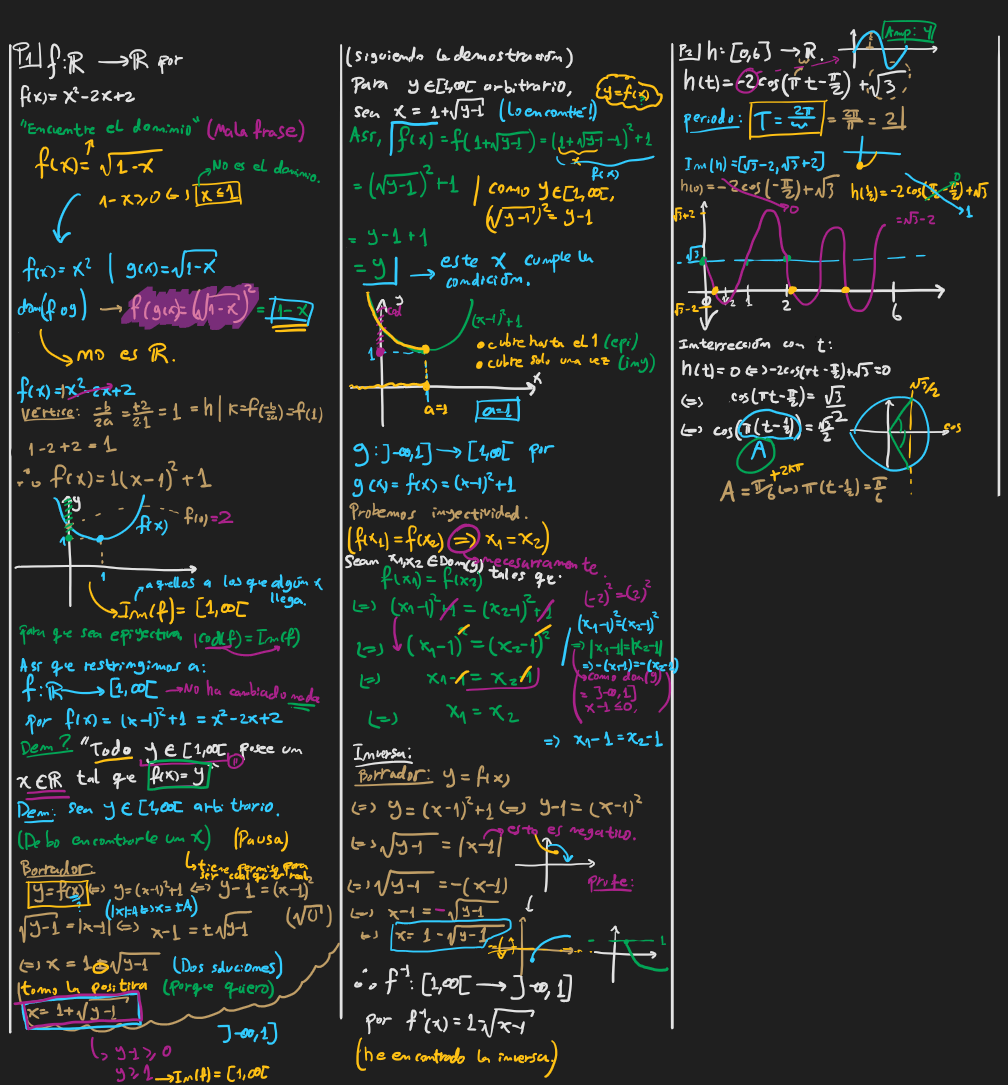 P1] f: ℝ → ℝ por
f(x) = x² - 2x + 2
"Encuentre el dominio" (Mala frase)
f(x) = √(1-x)
No es el dominio.
1-x ≥ 0 ⇔ x ≤ 1
f(x) = x² | g(x) = √(1-x)
dom(f∘g) → f(g(x)) = (√(1-x))² = 1-x
no es ℝ.
f(x) = x² - 2x + 2
Vertice: -b/2a = +2/2·1 = 1 = h | k = f(-b/2a) = f(1)
1 - 2 + 2 = 1
∴ f(x) = 1(x-1)² + 1
y
f(x)
f(0) = 2
1
1
aquellos a los que algún x llega.
Im(f) = [1,∞[
para que sea epiyectiva (cod(f) = Im(f))
Así que restringimos a:
f: ℝ → [1,∞[ → No ha cambiado nada
por f(x) = (x-1)² + 1 = x² - 2x + 2
Dem? "Todo y ∈ [1,∞[ posee un
x ∈ ℝ tal que f(x) = y"
Dem: sea y ∈ [1,∞[ arbitrario.
(Debo encontrarle un x) (Pausa)
Borrador:
y = f(x) ⇔ y = (x-1)² + 1 ⇔ y - 1 = (x-1)²
(|x| = A ⇔ x = ±A)
√(y-1) = |x-1| ⇔ x - 1 = ±√(y-1)
⇔ x = 1 ± √(y-1) (Dos soluciones)
tomo la positiva (porque quero)
x = 1 + √(y-1)
]-∞,1]
y-1 ≥ 0
y ≥ 1 → Im(f) = [1,∞[
(siguiendo la demostración)
Para y ∈ [1,∞[ arbitrario,
y = f(x)
sea x = 1 + √(y-1) (Lo encontré!)
Así, f(x) = f(1+√(y-1)) = (1+√(y-1) - 1)² + 1
x
f(x)
= (√(y-1))² + 1 | como y ∈ [1,∞[,
(√(y-1))² = y-1
= y - 1 + 1
= y | → este x cumple la condición.
y
cod
(x-1)² + 1
• cubre hasta el 1 (epi)
• cubre solo una vez (iny)
1
x
a=1
a=1
g: ]-∞,1] → [1,∞[ por
g(x) = f(x) = (x-1)² + 1
Probemos inyectividad.
(f(x₁) = f(x₂) ⇒ x₁ = x₂)
necesariamente.
Sean x₁,x₂ ∈ Dom(g) tales que:
f(x₁) = f(x₂)
⇔ (x₁-1)² + 1 = (x₂-1)² + 1
(-2)² = (2)²
⇔ (x₁-1)² = (x₂-1)²
(x₁-1)² = (x₂-1)²
⇒ |x₁-1| = |x₂-1|
⇒ -(x₁-1) = -(x₂-1)
⇔ x₁ - 1 = x₂ - 1
como dom(g)
= ]-∞,1]
x-1 ≤ 0,
⇔ x₁ = x₂
⇒ x₁ - 1 = x₂ - 1
Inversa:
Borrador: y = f(x)
⇔ y = (x-1)² + 1 ⇔ y - 1 = (x-1)²
⇔ √(y-1) = |x-1| → esto es negativo.
⇔ √(y-1) = -(x-1)
⇔ x - 1 = -√(y-1)
⇔ x = 1 - √(y-1)
1
∴ f⁻¹: [1,∞[ → ]-∞,1]
por f⁻¹(x) = 1-√(x-1)
(he encontrado la inversa.)
P2] h: [0,6] → ℝ.
Amp: 4
w
h(t) = -2cos(πt - π/2) + √3
periodo: T = 2π/w = 2π/π = 2
Im(h) = [√3-2, √3+2]
h(0) = -2cos(-π/2) + √3
0
h(½) = -2cos(π/2 - π/2) + √3
0
1
= √3 - 2
√3+2
√3
√3-2
0 ½ 1 2 6
Intersección con t:
h(t) = 0 ⇔ -2cos(πt - π/2) + √3 = 0
⇔ cos(πt - π/2) = √3/2
⇔ cos(π(t-½)) = √3/2
A
√3/2
cos
A = π/6 + 2kπ ⇔ π(t-½) = π/6